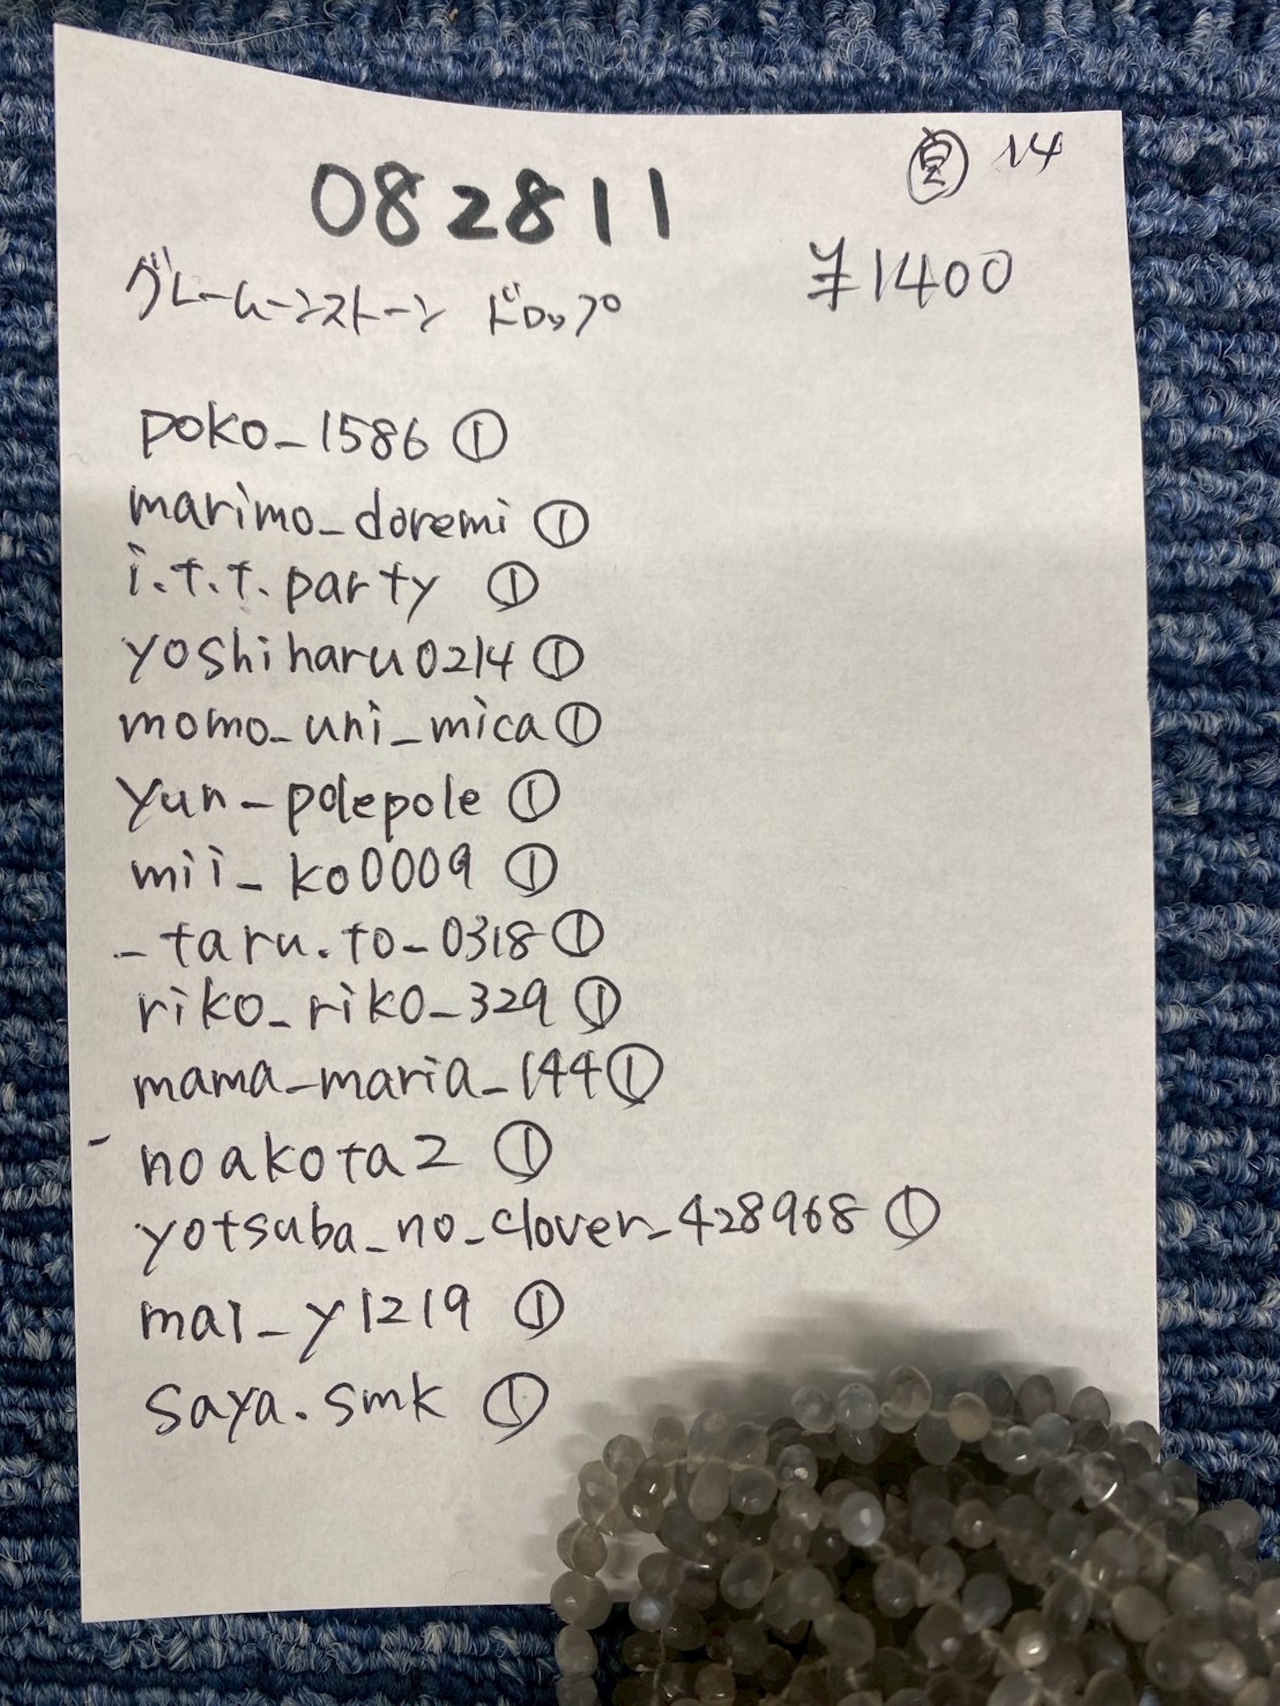 082811
14
グレームーンストーン ドロップ
¥1400
poko_1586 ①
marimo_doremi ①
i.t.t.party ①
yoshiharu0214 ①
momo_uni_mica ①
yun_polepole ①
mii_ko0009 ①
_taru.to_0318 ①
riko_riko_329 ①
mama_maria_144 ①
noakota2 ①
yotsuba_no_clover_428968 ①
mai_y1219 ①
saya.smk ①